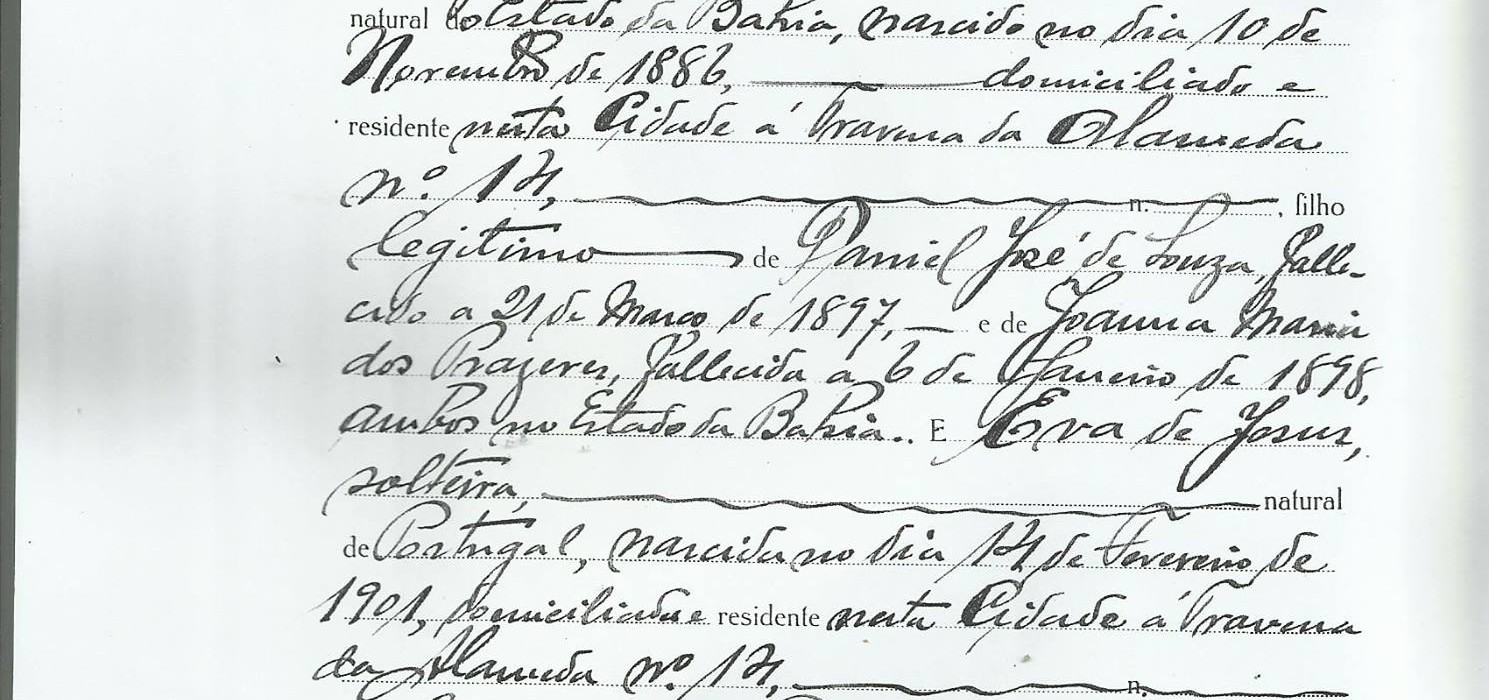 natural do Estado da Bahia, nascido no dia 10 de
Novembro de 1886, domiciliado e
residente nesta Cidade á Travessa da Alameda
nº. 14, n. , filho
legitimo de Daniel José de Souza, falle-
cido a 21 de Março de 1897, e de Joanna Maria
dos Prazeres, fallecida a 6 de Janeiro de 1898,
ambos no Estado da Bahia.. E Eva de Jesus,
solteira, natural
de Portugal, nascida no dia 14 de Fevereiro de
1901, domiciliada e residente nesta Cidade á Travessa
da Alameda nº. 14, n.